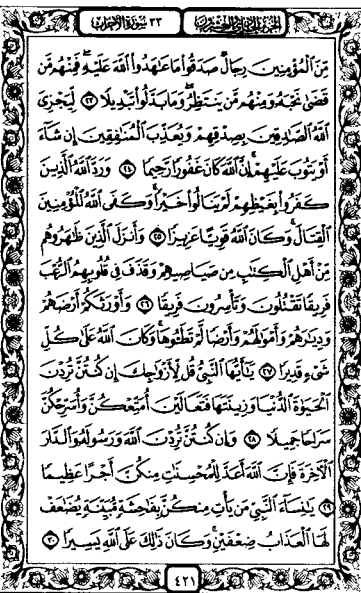 الجزء الحادي والعشرون ٣٣ سورة الأحزاب
مِّنَ ٱلْمُؤْمِنِينَ رِجَالٌ صَدَقُوا۟ مَا عَٰهَدُوا۟ ٱللَّهَ عَلَيْهِ ۖ فَمِنْهُم مَّن
قَضَىٰ نَحْبَهُۥ وَمِنْهُم مَّن يَنتَظِرُ ۖ وَمَا بَدَّلُوا۟ تَبْدِيلًا ٢٣ لِّيَجْزِىَ
ٱللَّهُ ٱلصَّٰدِقِينَ بِصِدْقِهِمْ وَيُعَذِّبَ ٱلْمُنَٰفِقِينَ إِن شَآءَ
أَوْ يَتُوبَ عَلَيْهِمْ ۚ إِنَّ ٱللَّهَ كَانَ غَفُورًا رَّحِيمًا ٢٤ وَرَدَّ ٱللَّهُ ٱلَّذِينَ
كَفَرُوا۟ بِغَيْظِهِمْ لَمْ يَنَالُوا۟ خَيْرًا ۚ وَكَفَى ٱللَّهُ ٱلْمُؤْمِنِينَ
ٱلْقِتَالَ ۚ وَكَانَ ٱللَّهُ قَوِيًّا عَزِيزًا ٢٥ وَأَنزَلَ ٱلَّذِينَ ظَٰهَرُوهُم
مِّنْ أَهْلِ ٱلْكِتَٰبِ مِن صَيَاصِيهِمْ وَقَذَفَ فِى قُلُوبِهِمُ ٱلرُّعْبَ
فَرِيقًا تَقْتُلُونَ وَتَأْسِرُونَ فَرِيقًا ٢٦ وَأَوْرَثَكُمْ أَرْضَهُمْ
وَدِيَٰرَهُمْ وَأَمْوَٰلَهُمْ وَأَرْضًا لَّمْ تَطَـُٔوهَا ۚ وَكَانَ ٱللَّهُ عَلَىٰ كُلِّ
شَىْءٍ قَدِيرًا ٢٧ يَٰٓأَيُّهَا ٱلنَّبِىُّ قُل لِّأَزْوَٰجِكَ إِن كُنتُنَّ تُرِدْنَ
ٱلْحَيَوٰةَ ٱلدُّنْيَا وَزِينَتَهَا فَتَعَالَيْنَ أُمَتِّعْكُنَّ وَأُسَرِّحْكُنَّ
سَرَاحًا جَمِيلًا ٢٨ وَإِن كُنتُنَّ تُرِدْنَ ٱللَّهَ وَرَسُولَهُۥ وَٱلدَّارَ
ٱلْـَٔاخِرَةَ فَإِنَّ ٱللَّهَ أَعَدَّ لِلْمُحْسِنَٰتِ مِنكُنَّ أَجْرًا عَظِيمًا
٢٩ يَٰنِسَآءَ ٱلنَّبِىِّ مَن يَأْتِ مِنكُنَّ بِفَٰحِشَةٍ مُّبَيِّنَةٍ يُضَٰعَفْ
لَهَا ٱلْعَذَابُ ضِعْفَيْنِ ۚ وَكَانَ ذَٰلِكَ عَلَى ٱللَّهِ يَسِيرًا ٣٠
٤٢١